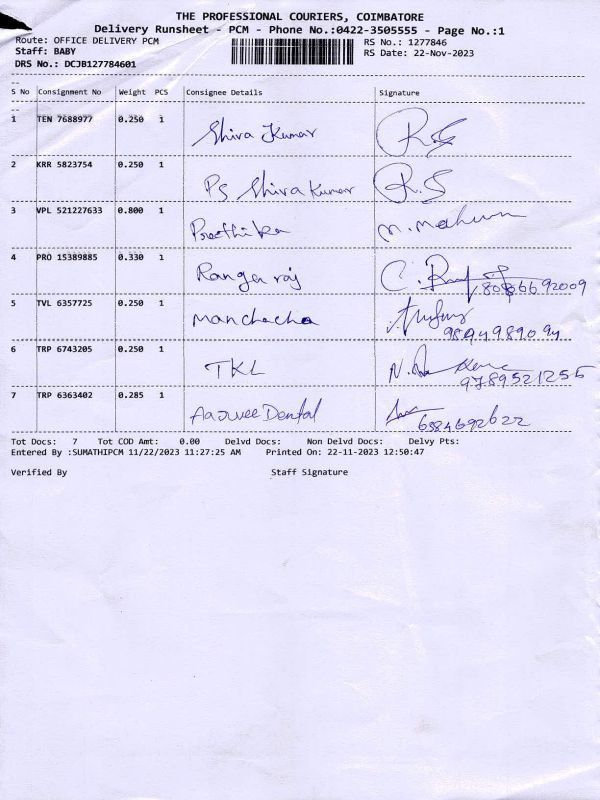 THE PROFESSIONAL COURIERS, COIMBATORE
Delivery Runsheet - PCM - Phone No.:0422-3505555 - Page No.:1
Route: OFFICE DELIVERY PCM RS No.: 1277846
Staff: BABY RS Date: 22-Nov-2023
DRS No.: DCJB127784601
S No Consignment No Weight PCS Consignee Details Signature
1 TEN 7688977 0.250 1 Shiva Kumar R.S
2 KRR 5823754 0.250 1 PS Shiva Kumar R.S
3 VPL 521227633 0.800 1 Preethika M.
4 PRO 15389885 0.330 1 Ranga raj C.
5 TVL 6357725 0.250 1 Manchacha
6 TRP 6743205 0.250 1 TKL N.
9789521255
7 TRP 6363402 0.285 1 Dental
6384692622
Tot Docs: 7 Tot COD Amt: 0.00 Delvd Docs: Non Delvd Docs: Delvy Pts:
Entered By :SUMATHIPCM 11/22/2023 11:27:25 AM Printed On: 22-11-2023 12:50:47
Verified By Staff Signature